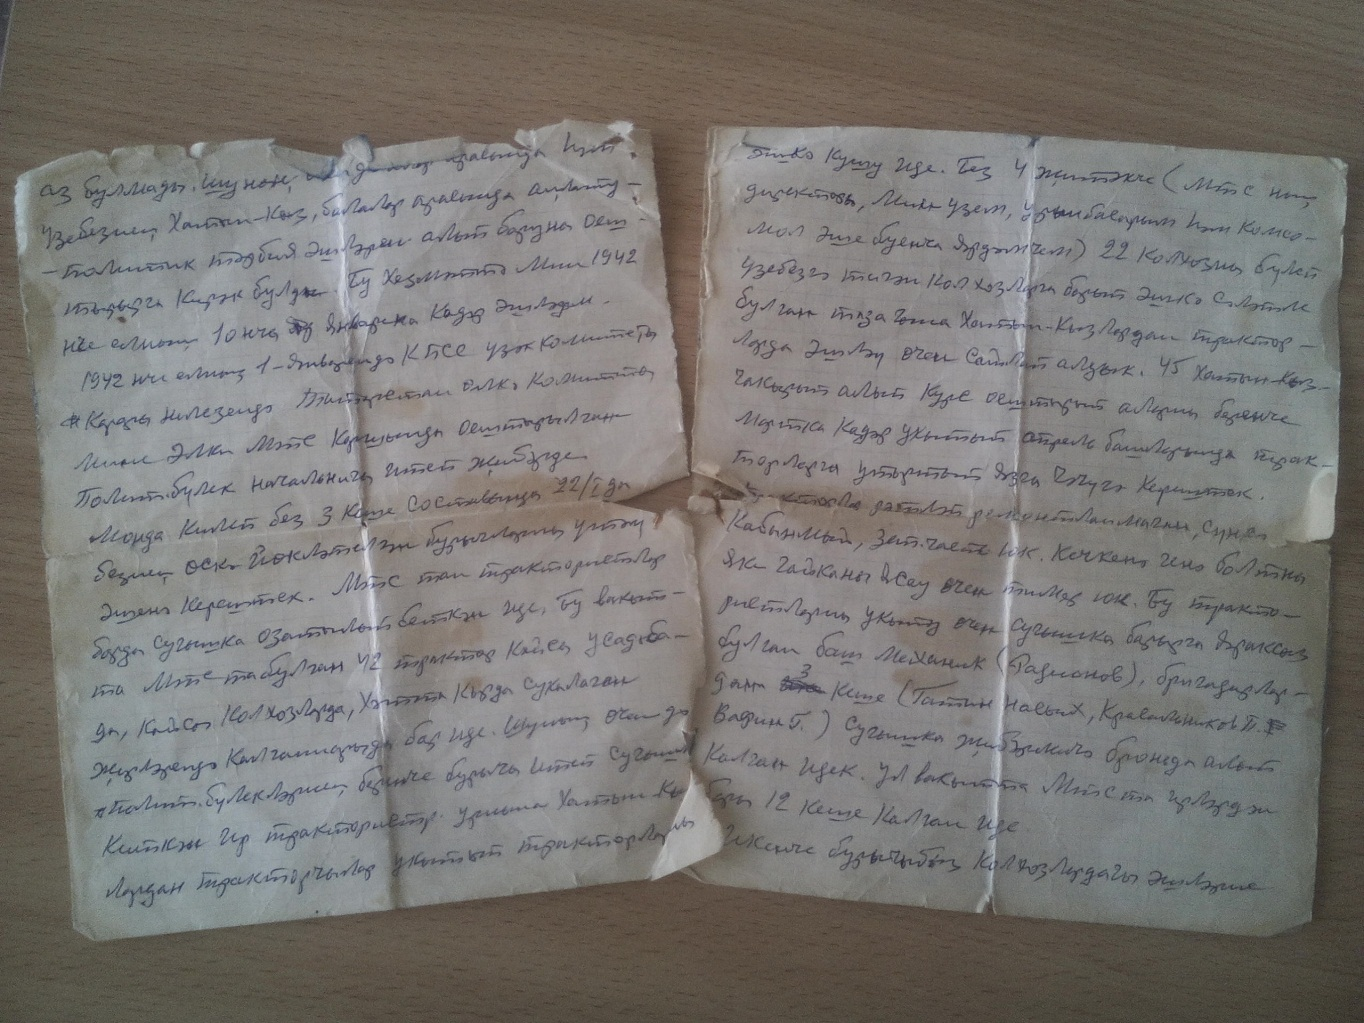 аз булмады. Шунон, арасында һәм
үзебезнең Хатын-Кыз, балалар арасында аңлату-
-политик тәрбия эшләрен алып баруны оеш-
тырырга кирәк булды. Бу хезмәттә мин 1942
нче елның 10 нча январена кадәр эшләдем.
1942 нче елның 1-январенда КПСС үзәк комитеты
карары нигезендә Татарстан өлкә комитеты
мине Әлки МТС каршында оештырылган
Политбүлек начальнигы итеп җибәрде.
Монда килеп без 3 кеше составында 22/I дә
безнең өскә йөкләтелгән бурычларны үтәү
эшенә керештек. МТС тан трактористлар
барда сугышка озатылып беткән иде, Бу вакыт-
та МТС та булган 42 трактор кайсы усадьба-
да, кайсы колхозларда, хәтта кырда сукалаган
җирләрендә калганнарыда бар иде. Шуның өчен дә
политбүлекләрнең беренче бурычы итеп сугышка
киткән ир трактористр. урнына хатын-кы
лардан тракторчылар укытып тракторларны
эшкә кушу иде. Без 4 җитәкче (МТС ның
директоры, мин үзем, урынбасарым һәм комсо-
мол эше буенча ярдәмчем) 22 колхозны бүлеп
үзебезгә тигән колхозларга барып эшкә сәләтле
булган тазагына хатын-кызлардан трактор-
ларда эшләү өчен сайлап алдык. 45 хатын-кыз-
чакырып алып курс оештырып аларны беренче
мартка кадәр укытып апрель башларында трак-
торларга утыртып язгы чәчүгә керештек.
Тракторлар рәтләп ремонтланмаган, суңса
кабынмый, запчасть юк. Кечкенә генә болтны
яки гайканы ясау өчен тимер юк. Бу тракто-
ристларны укыту өчен сугышка барырга яраксыз
булган баш механик (Радионов), бригадирлар-
дан 3 кеше (Гатин Навых, Красильников П.
Вафин Г.) сугышка җибәрмичә броньда алып
калган идек. Ул вакытта МТС та ирләрдән
бары 12 кеше калган иде
Икенче бурычыбыз колхозлардагы эшләрне